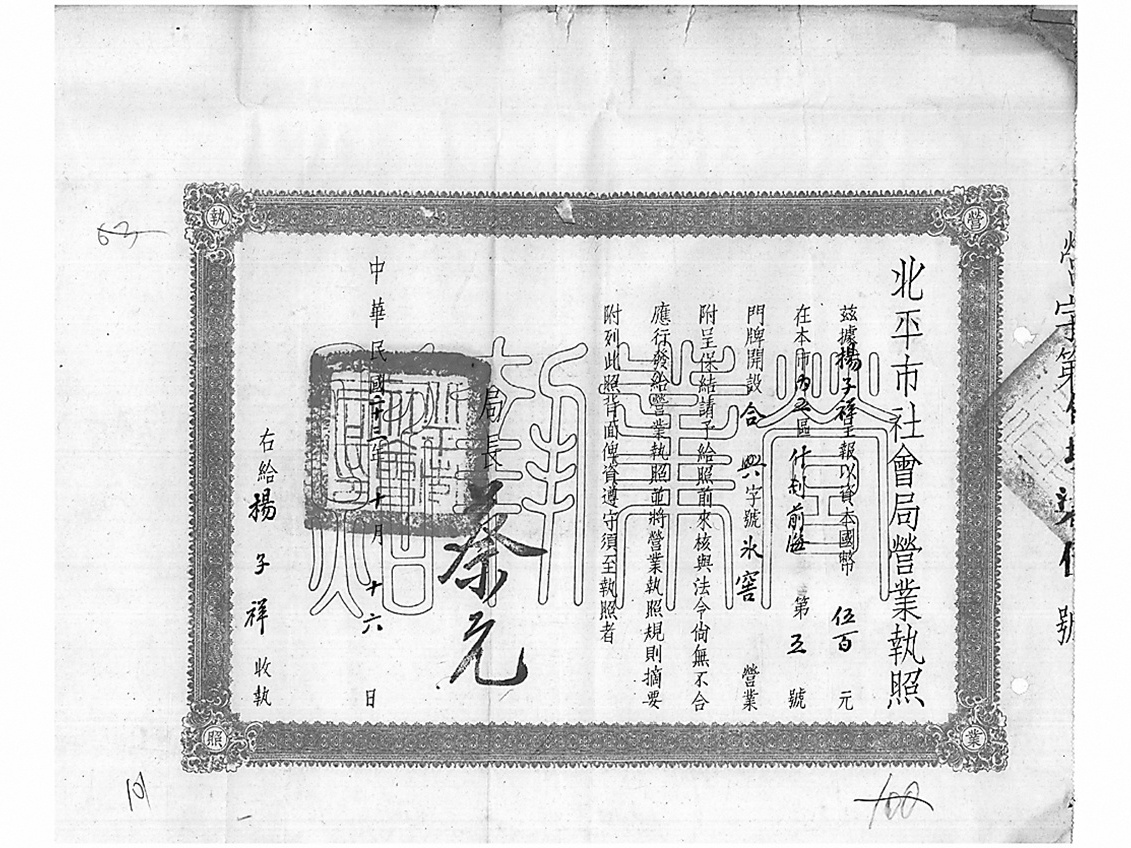 北平市社會局營業執照
茲據楊子祥呈報以資本國幣伍百元
在本市內五區什刹前海第五號
門牌開設合興字號氷窖營業
附呈保結請予給照前來核與法令尙無不合
應行發給營業執照並將營業執照規則摘要
附列此照背面俾資遵守須至執照者
局長蔡元
中華民國廿三年十月十六日
右給楊子祥收執
營業執照
營業執照
字第
號
63
101
100